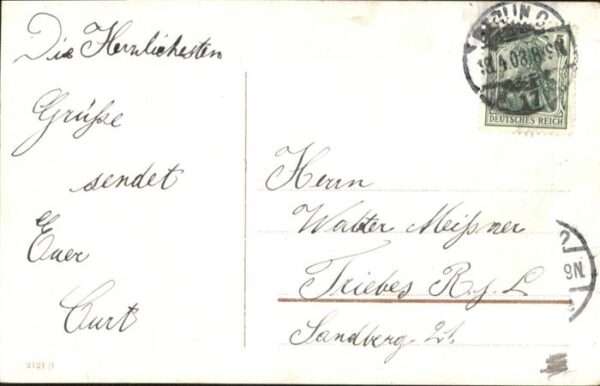 Die Herrlichesten
Grüße
sendet
Euer
Curt
BERLIN C.
.4.08.8-9N
17
DEUTSCHES REICH
Herrn
Walter Meißner
Triebes R. j. L
Sandberg 21.
9N.